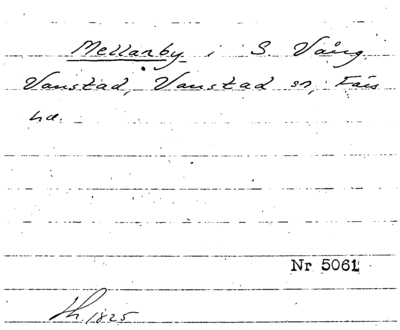 Mellanby i S Vång
Vanstad, Vanstad sn, Färs
hd.
Nr 5061
1825